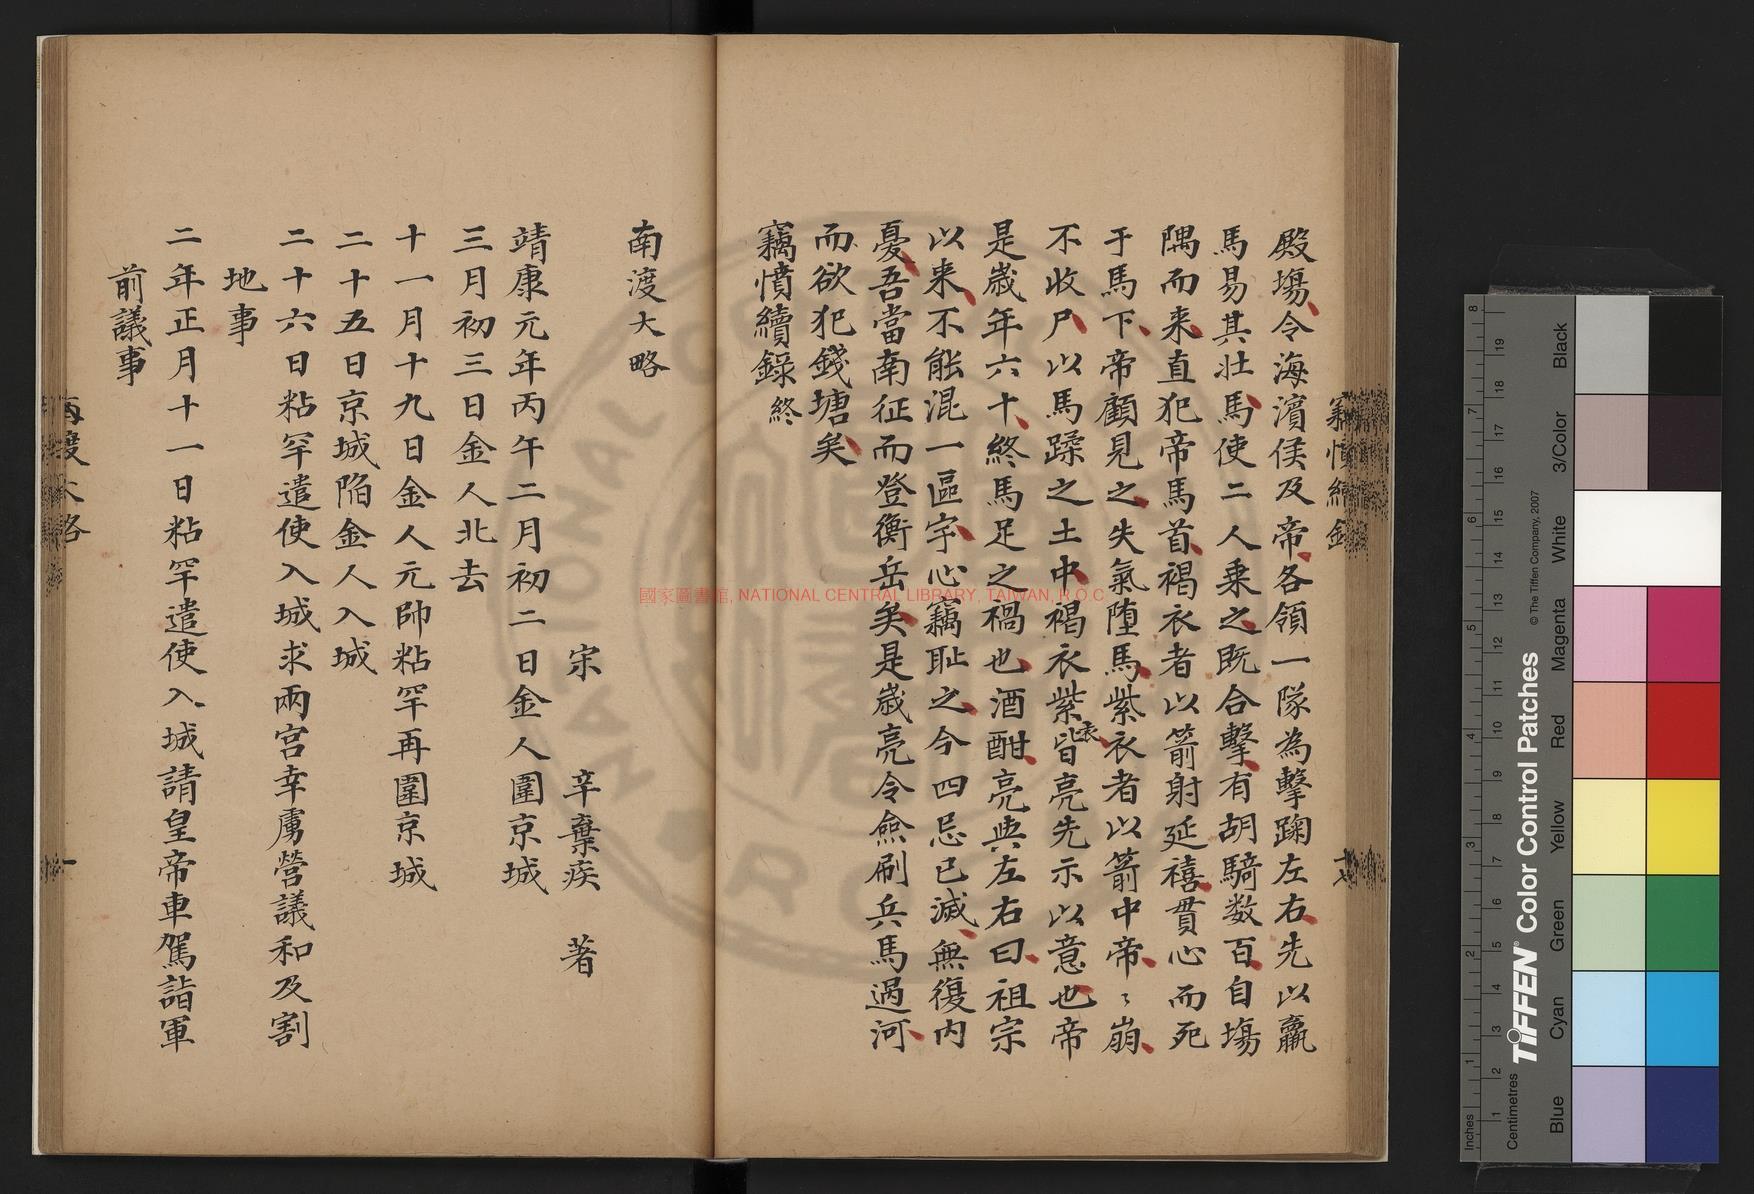 殿場令海濱侯及帝各領一隊為擊踘左右先以羸
馬易其壯馬使二人乗之既合擊有胡騎数百自場
隅而来直犯帝馬首褐衣者以箭射延禧貫心而死
于馬下帝顧見之失氣墮馬紫衣者以箭中帝〻崩
不收尸以馬蹂之土中褐衣紫衣皆亮先示以意也帝
是歲年六十終馬足之禍也酒酣亮與左右曰祖宗
以来不能混一區宇心竊耻之今四忌已滅無復内
憂吾當南征而登衡岳矣是歲亮令僉刷兵馬過河
而欲犯錢塘矣
竊憤續錄終
南渡大略
宋 辛棄疾 著
靖康元年丙午二月初二日金人圍京城
三月初三日金人北去
十一月十九日金人元帥粘罕再圍京城
二十五日京城陷金人入城
二十六日粘罕遣使入城求兩宮幸虜營議和及割
地事
二年正月十一日粘罕遣使入城請皇帝車駕詣軍
前議事
國家圖書館, NATIONAL CENTRAL LIBRARY, TAIWAN, R.O.C
TIFFEN® Color Control Patches
© The Tiffen Company, 2007
Centimetres
Inches
Blue
Cyan
Green
Yellow
Red
Magenta
White
3/Color
Black